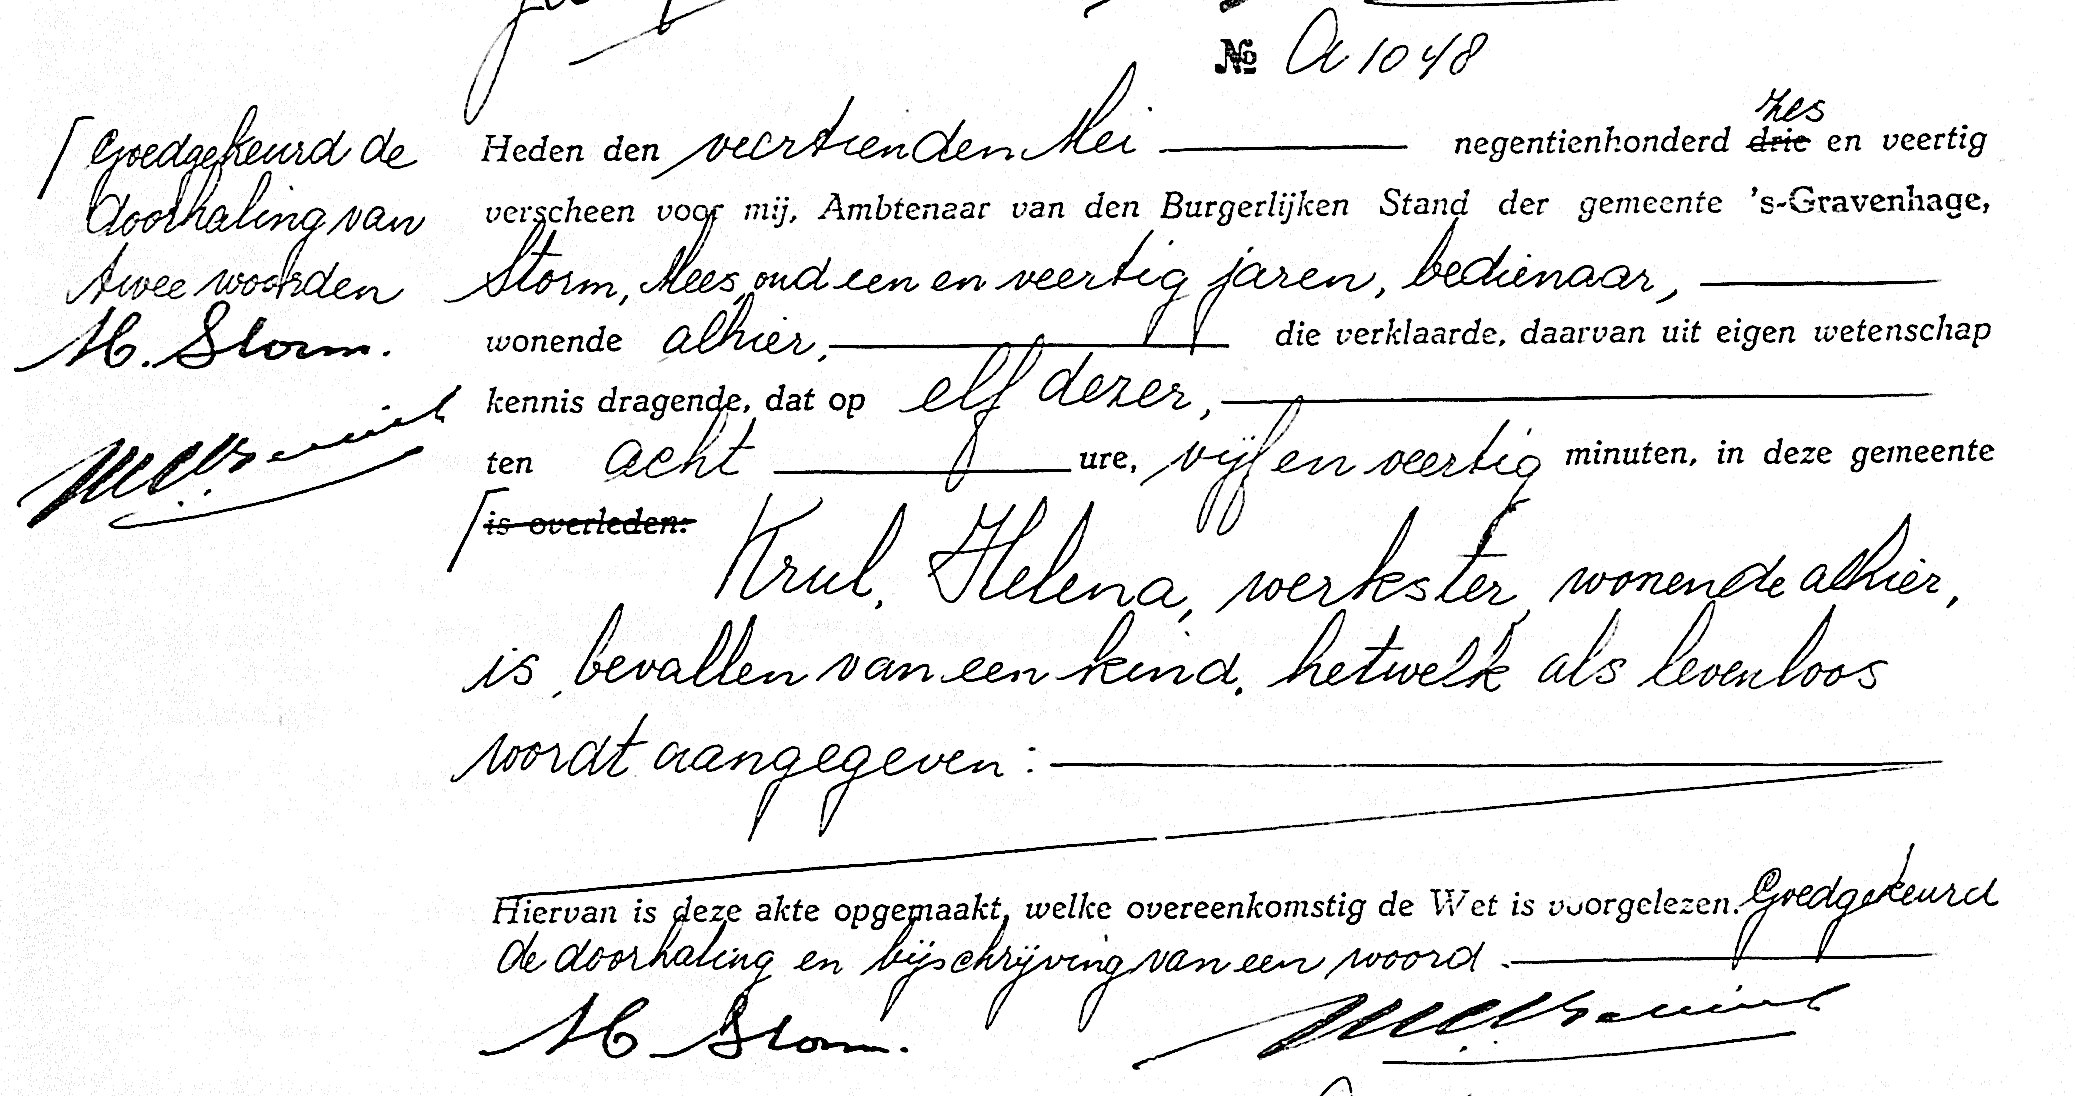 № A 1048
Goedgekeurd de
doorhaling van
twee woorden
M. Storm.
Heden den veertienden Mei negentienhonderd drie zes en veertig
verscheen voor mij, Ambtenaar van den Burgerlijken Stand der gemeente 's-Gravenhage,
Storm, Mees, oud een en veertig jaren, bedienaar,
wonende alhier, die verklaarde, daarvan uit eigen wetenschap
kennis dragende, dat op elf dezer,
ten acht ure, vijf en veertig minuten, in deze gemeente
is overleden:
Krul, Helena, werkster, wonende alhier,
is bevallen van een kind, hetwelk als levenloos
wordt aangegeven:
Hiervan is deze akte opgemaakt, welke overeenkomstig de Wet is voorgelezen. Goedgekeurd
de doorhaling en bijschrijving van een woord.
M Storm.